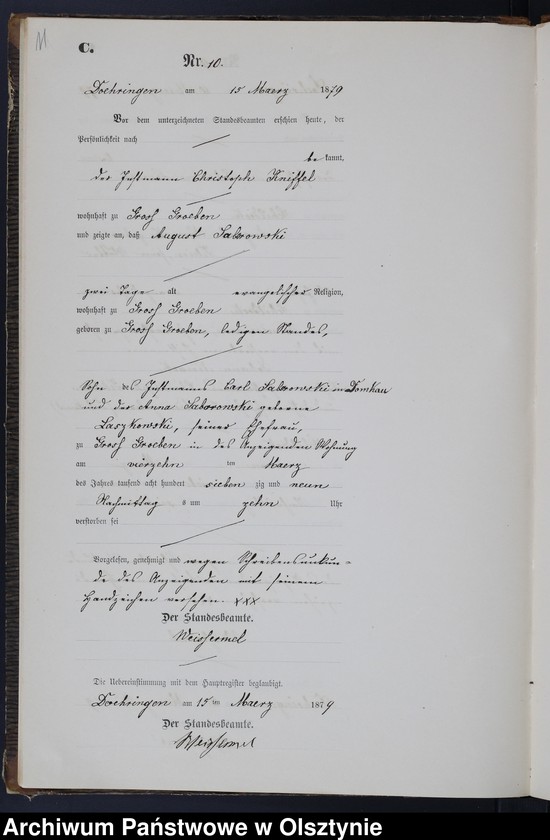 11
C.
Nr. 10.
Doehringen am 15 Maerz 1879
Vor dem unterzeichneten Standesbeamten erschien heute, der
Persönlichkeit nach
be kannt,
der Instmann Christoph Kniffel
wohnhaft zu Gross Groeben
und zeigte an, daß August Saborowski
zwei Tage alt evangelischer Religion,
wohnhaft zu Gross Groeben
geboren zu Gross Groeben, ledigen Standes,
Sohn des Instmanns Carl Saborowski in Domkau
und der Anna Saborowski geborne
Laszkowski, seiner Ehefrau,
zu Gross Groeben in des Anzeigenden Wohnung
am vierzehn ten Maerz
des Jahres tausend acht hundert sieben zig und neun
Nachmittag s um zehn Uhr
verstorben sei
Vorgelesen, genehmigt und wegen Schreibensunkun-
de des Anzeigenden mit seinem
Handzeichen versehen. XXX
Der Standesbeamte.
Weissermel
Die Uebereinstimmung mit dem Hauptregister beglaubigt.
Doehringen am 15 ten Maerz 1879
Der Standesbeamte.
Weissermel
Archiwum Państwowe w Olsztynie